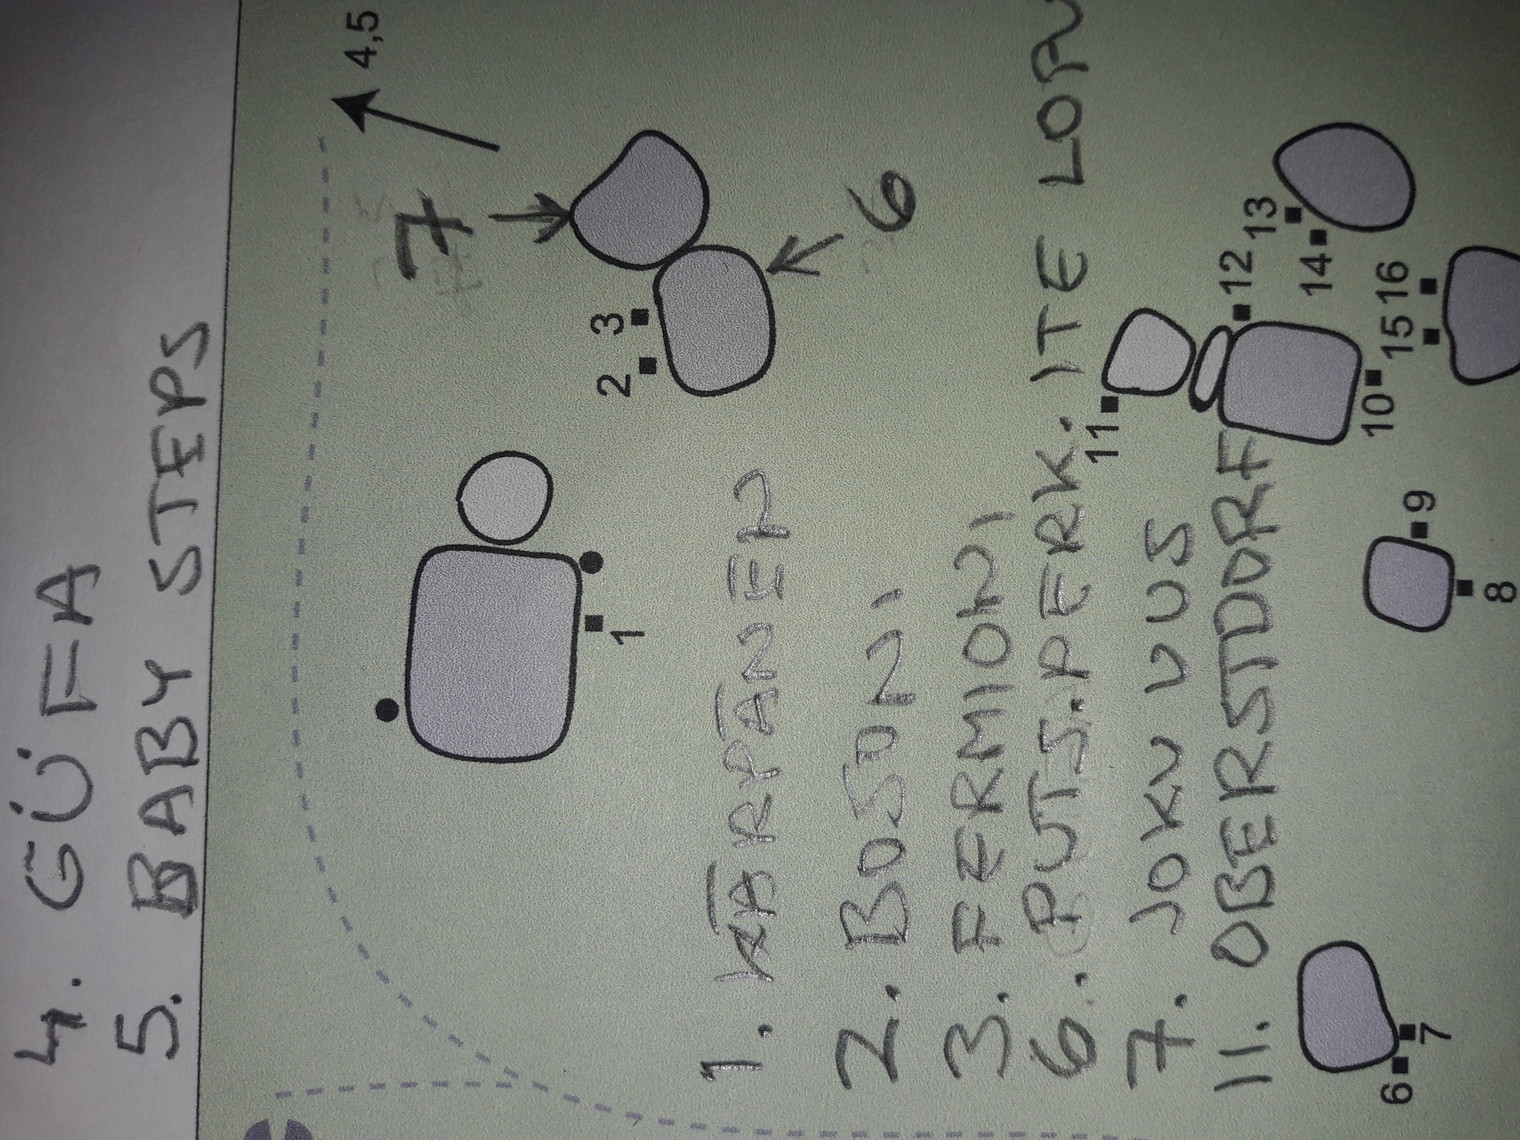 4. GÜFA
5. BABY STEPS
4,5
7
6
3
2
1
1. KÄRPÄNEN
2. BOSONI
3. FERMIONI
6. PUTS.PERK. ITE LOPU
7. JOKU UUS
11. OBERSTDORF
13
12
14
16
15
11
10
9
8
7
6